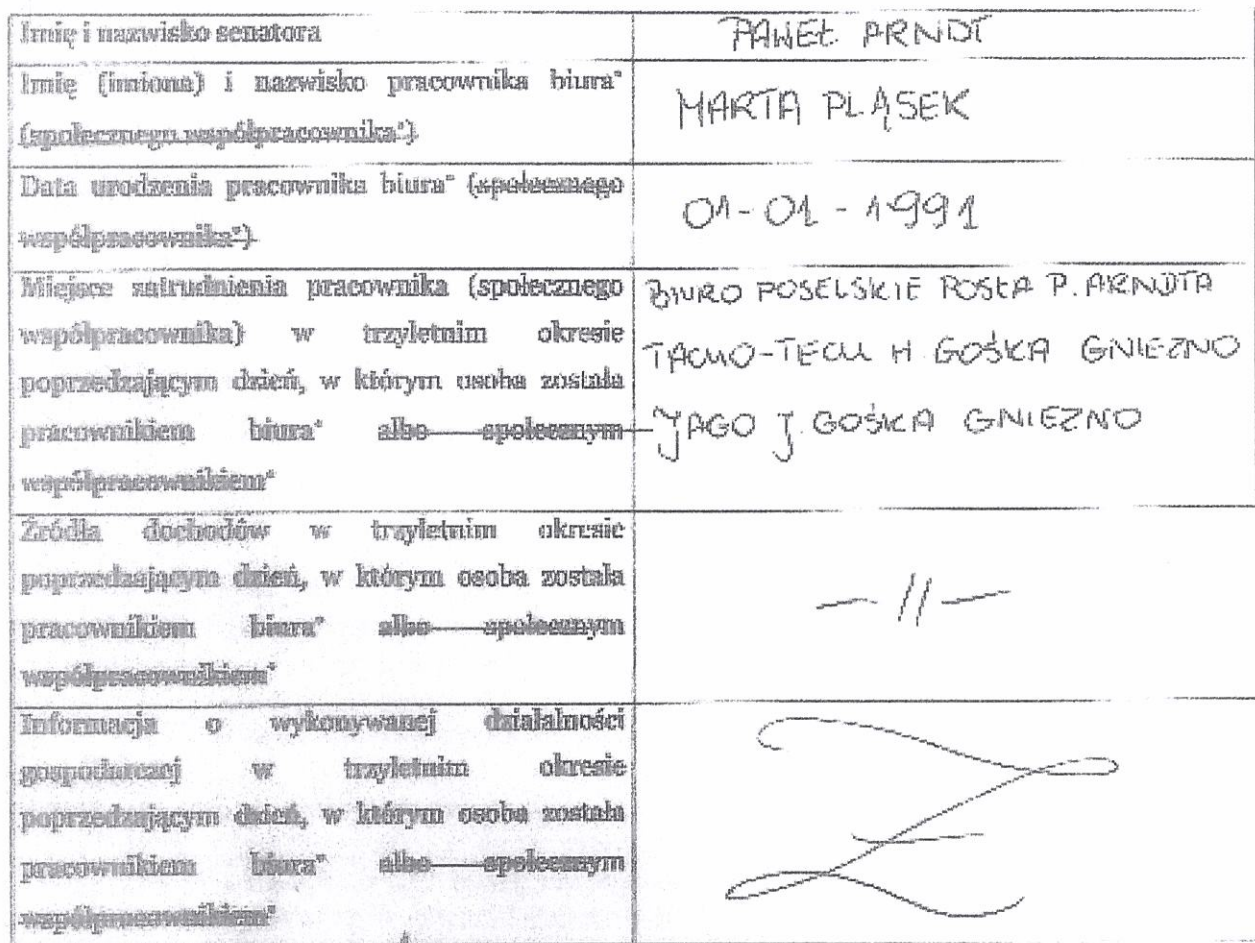 Imię i nazwisko senatora
PAWEŁ ARNDT
Imię (imiona) i nazwisko pracownika biura*
(społecznego współpracownika*)
MARTA PLĄSEK
Data urodzenia pracownika biura* (społecznego
współpracownika*)
01-01-1991
Miejsce zatrudnienia pracownika (społecznego
współpracownika) w trzyletnim okresie
poprzedzającym dzień, w którym osoba została
pracownikiem biura* albo społecznym
współpracownikiem*
BIURO POSELSKIE POSŁA P. ARNDTA
TACHO-TECH H GOŚKA GNIEZNO
JAGO J. GOŚKA GNIEZNO
Źródła dochodów w trzyletnim okresie
poprzedzającym dzień, w którym osoba została
pracownikiem biura* albo społecznym
współpracownikiem*
— // —
Informacja o wykonywanej działalności
gospodarczej w trzyletnim okresie
poprzedzającym dzień, w którym osoba została
pracownikiem biura* albo społecznym
współpracownikiem*